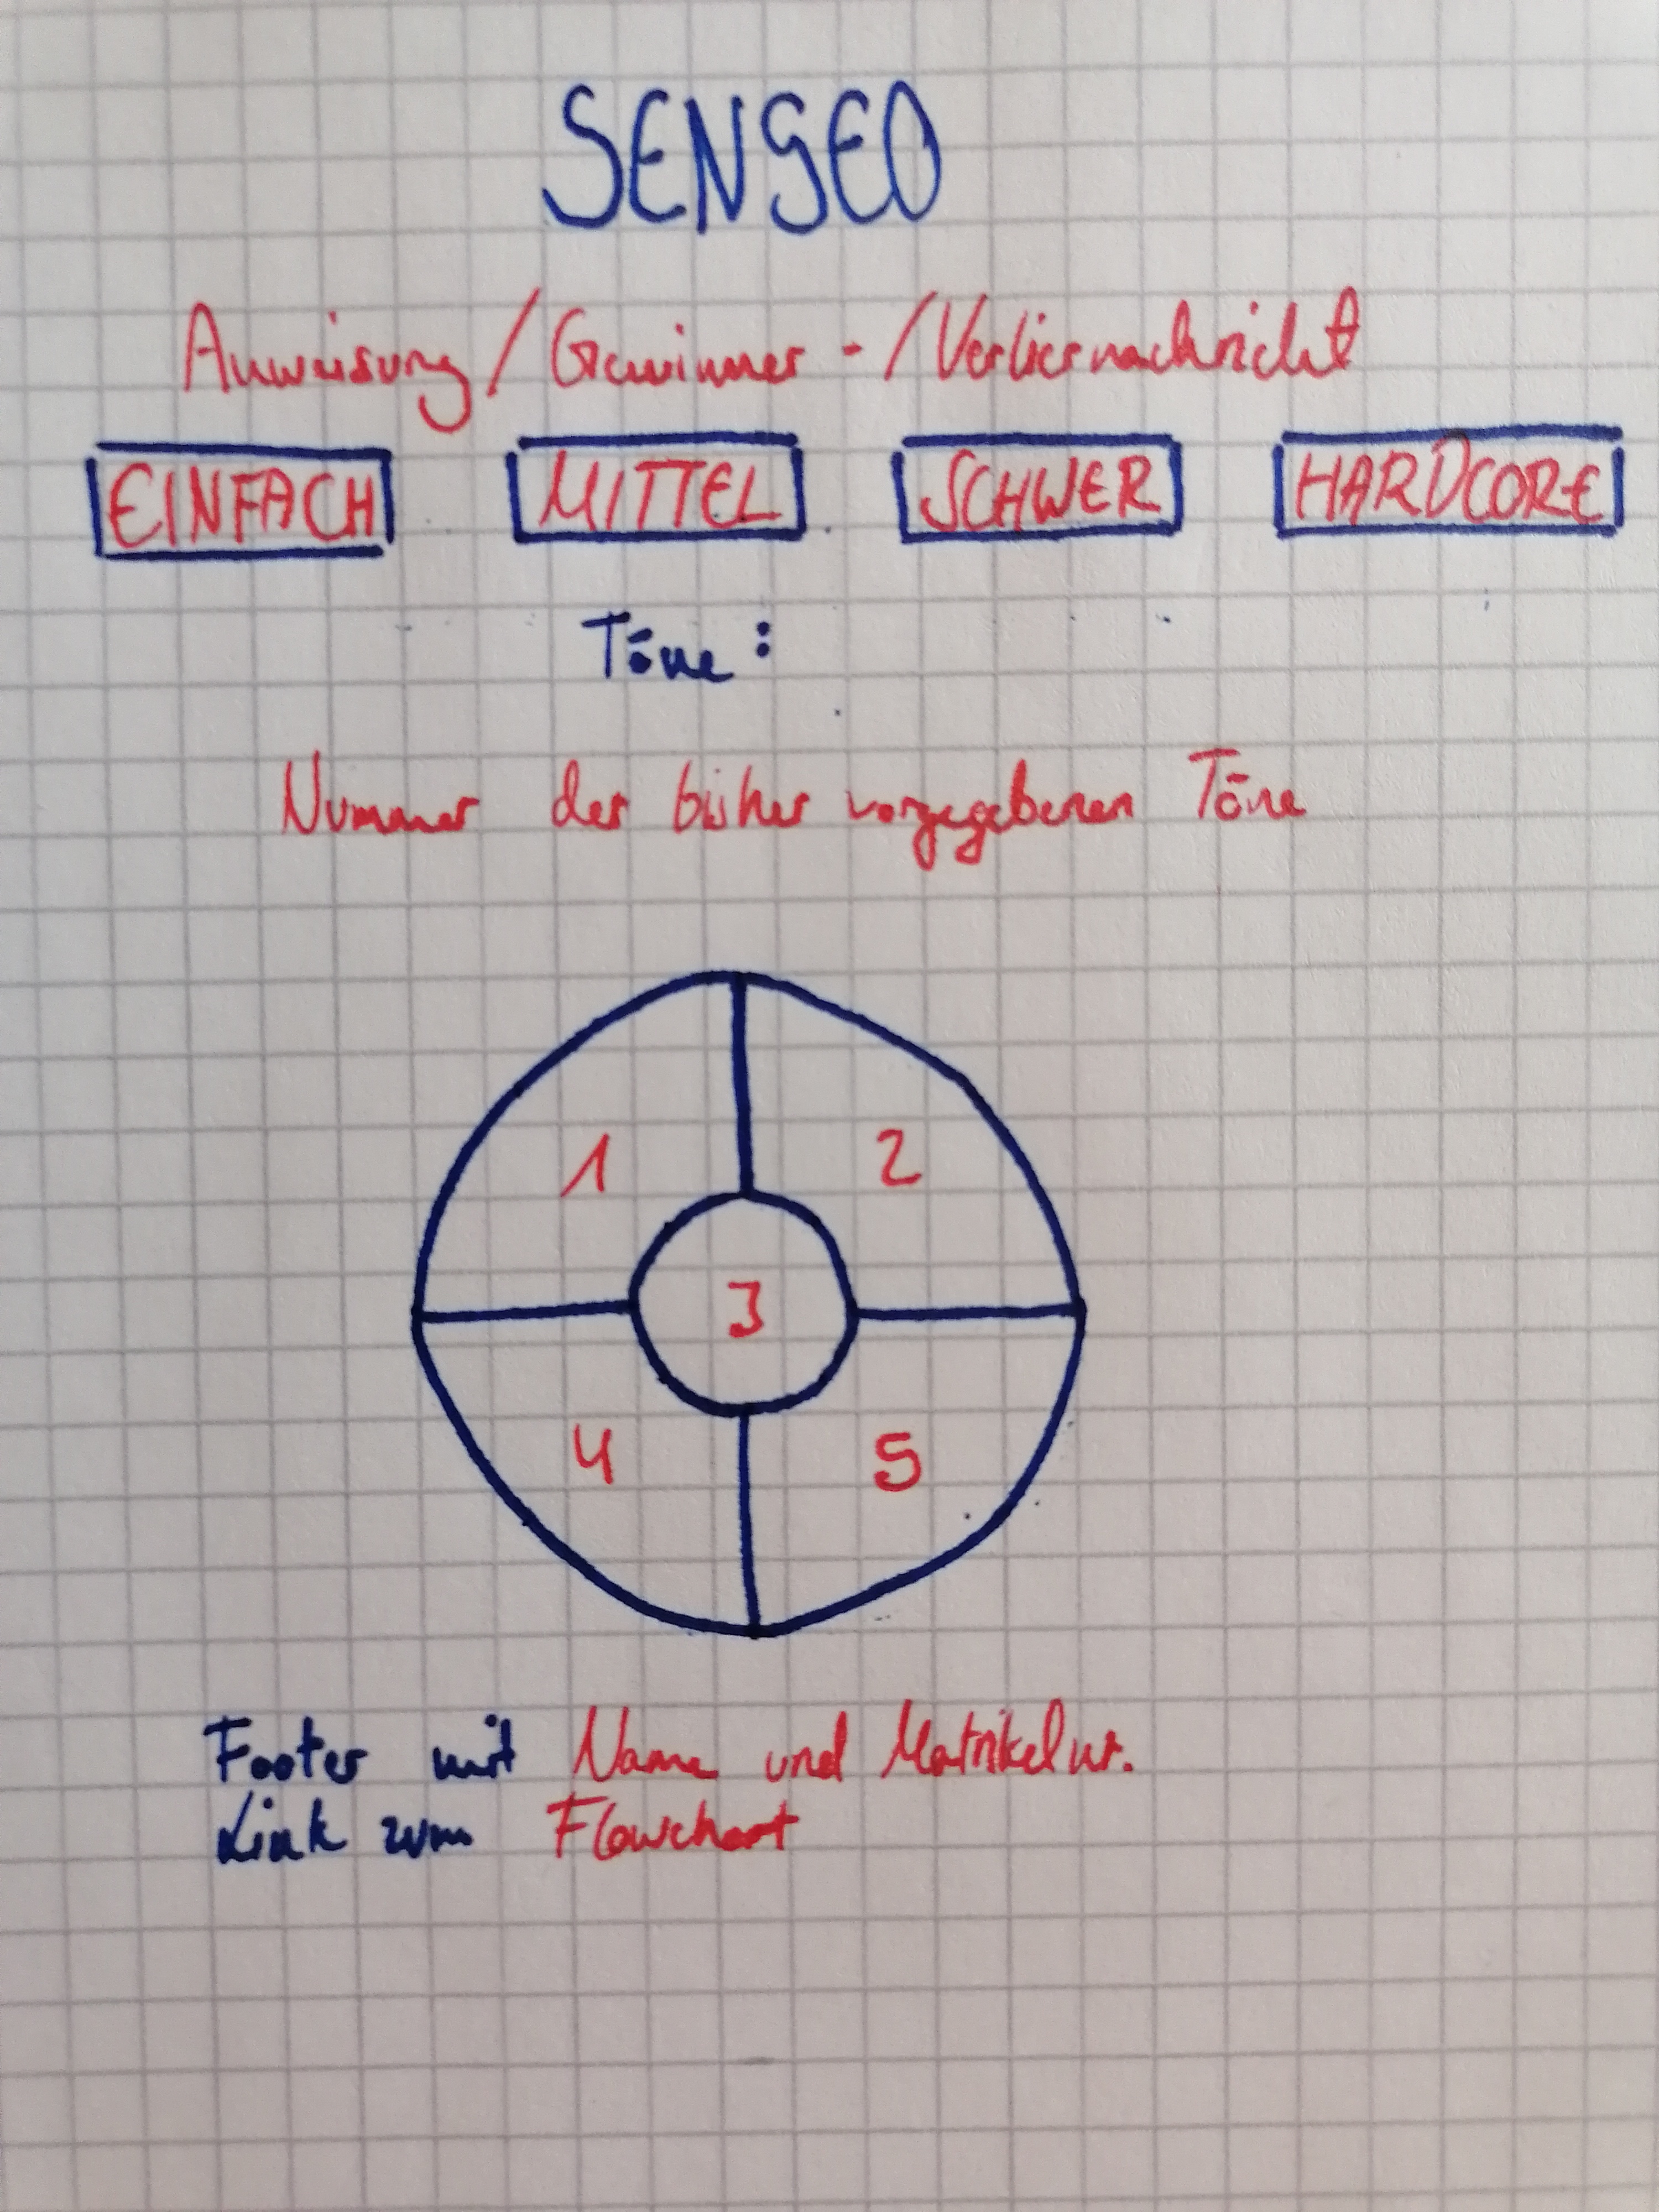 SENSEO
Anweisung / Gewinner - / Verliernachricht
EINFACH MITTEL SCHWER HARDCORE
Töne :
Nummer der bisher vorgegebenen Töne
1 2
3
4 5
Footer mit Name und Matrikelnr.
Link zum Flowchart